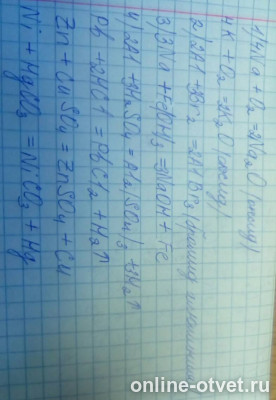 1) 4Na + O₂ = 2Na₂O (оксид)
4K + O₂ = 2K₂O (оксид)
2) 2Al + 3Br₂ = 2AlBr₃ (бромид алюминия)
3) 3Na + Fe(OH)₃ = 3NaOH + Fe
4) 2Al + 3H₂SO₄ = Al₂(SO₄)₃ + 3H₂↑
Pb + 2HCl = PbCl₂ + H₂↑
Zn + CuSO₄ = ZnSO₄ + Cu
Ni + HgCO₃ = NiCO₃ + Hg
online-otvet.ru